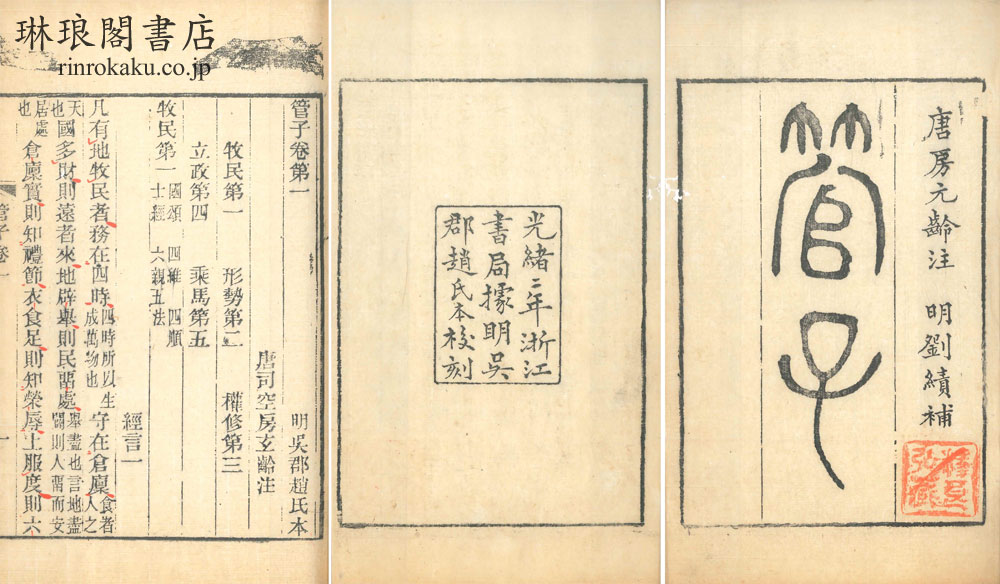 琳琅閣書店
rinrokaku.co.jp
唐房元齡注 明劉績補
管子
光緒二年浙江
書局據明吳
郡趙氏本校刻
管子卷第一 明吳郡趙氏本
唐司空房玄齡注
牧民第一 形勢第二 權修第三
立政第四 乘馬第五
牧民第一 國頌 四維 四順 士經 六親五法 經言一
凡有地牧民者務在四時四時所以生成萬物也守在倉廩食者人之
天也國多財則遠者來地辟舉則民畱處舉盡也言地盡闢則人畱而安
居處也倉廩實則知禮節衣食足則知榮辱上服度則六
管子卷一 一